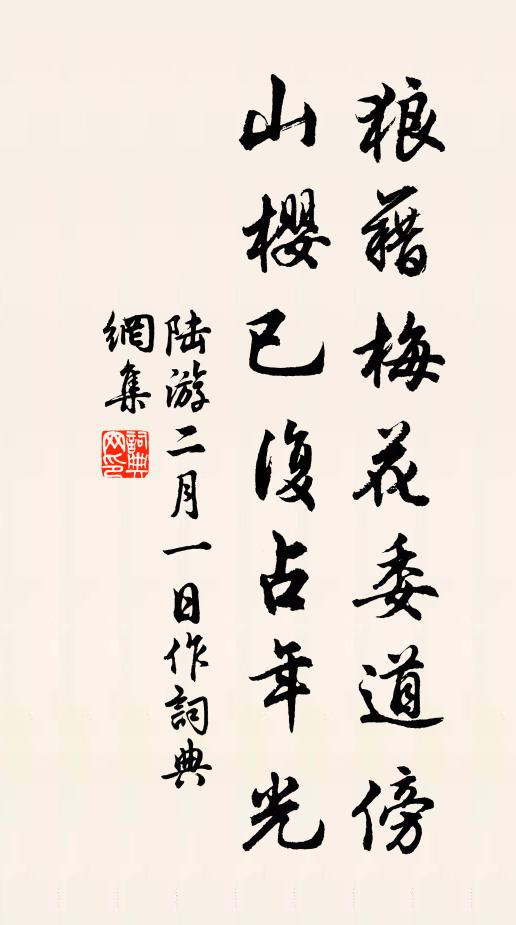 狼藉梅花委道傍
山櫻已復占年光
陆游二月一日作詞典
網集
詞典網印